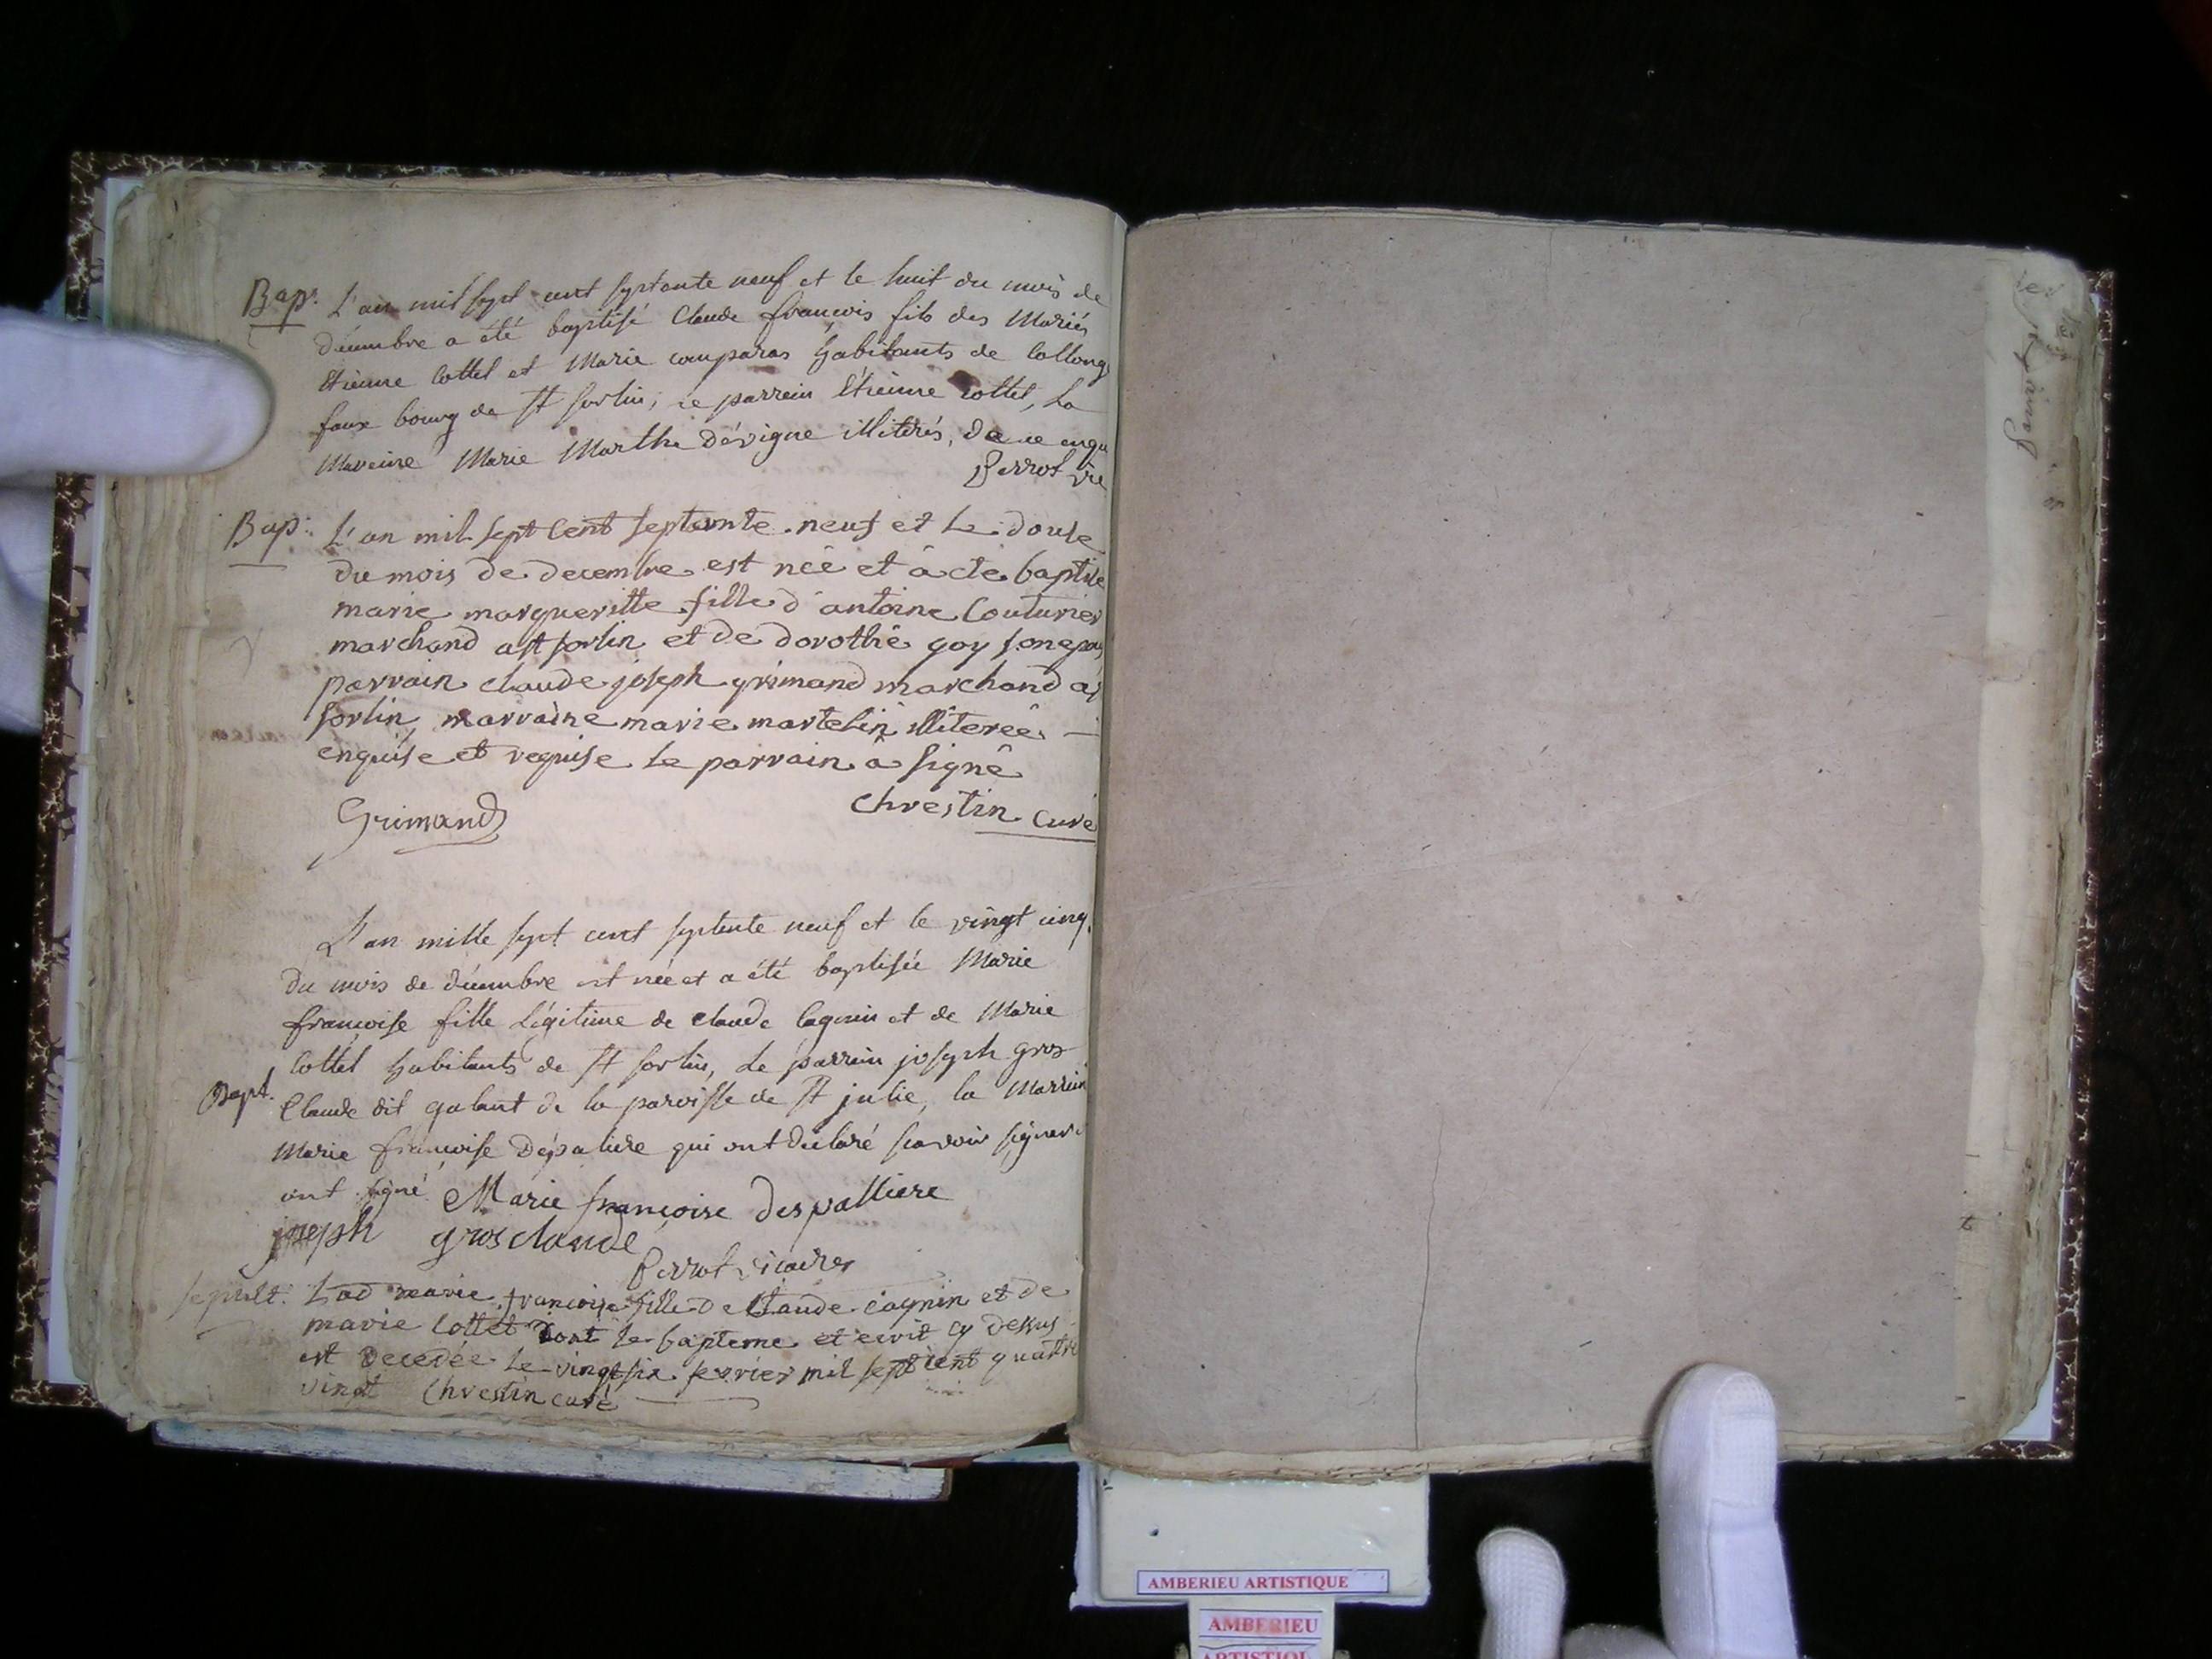 Bap.
L'an mil sept cent septante neuf et le huit du mois de
décembre a été baptisé Claude françois fils des Mariés
Etienne Cottet et Marie comparas habitants de Collong
faux bourg de St sorlin; le parrein Etienne Cottet, la
Mareine Marie Marthe Dévigne illiterés, de ce enqu
Perrot vic
Bap:
L'an mil sept Cent septante neuf et le douse
du mois de decembre est née et à eté baptise
marie margueritte fille d'antoine Couturier
marchand a st sorlin et de dorothé goy son epou
parrain claude joseph grimand marchand a s
sorlin, marraine marie martelin illiterée
enquise et requise le parrain a signé
Grimand
Chrestin Curé
L'an mille sept cent septente neuf et le vingt cinq
du mois de décembre est née et a été baptisée Marie
françoise fille légitime de claude Cagnin et de Marie
Cottet habitants de St sorlin, le parrein joseph gros
Bapt.
Claude dit galant de la paroisse de St julie, la Marrein
Marie françoise Dépaliere qui ont declaré scavoir signer
ont signé Marie françoise despalliere
joseph grosclaude
Perrot vicaire
sepult.
Lad marie françoise fille de Claude cagnin et de
marie Cottet dont le bapteme et ecrit cy dessus
est decedée le vingt six fevrier mil sept cent quattre
vingt Chrestin curé
AMBERIEU ARTISTIQUE
AMBERIEU
ARTISTIQU